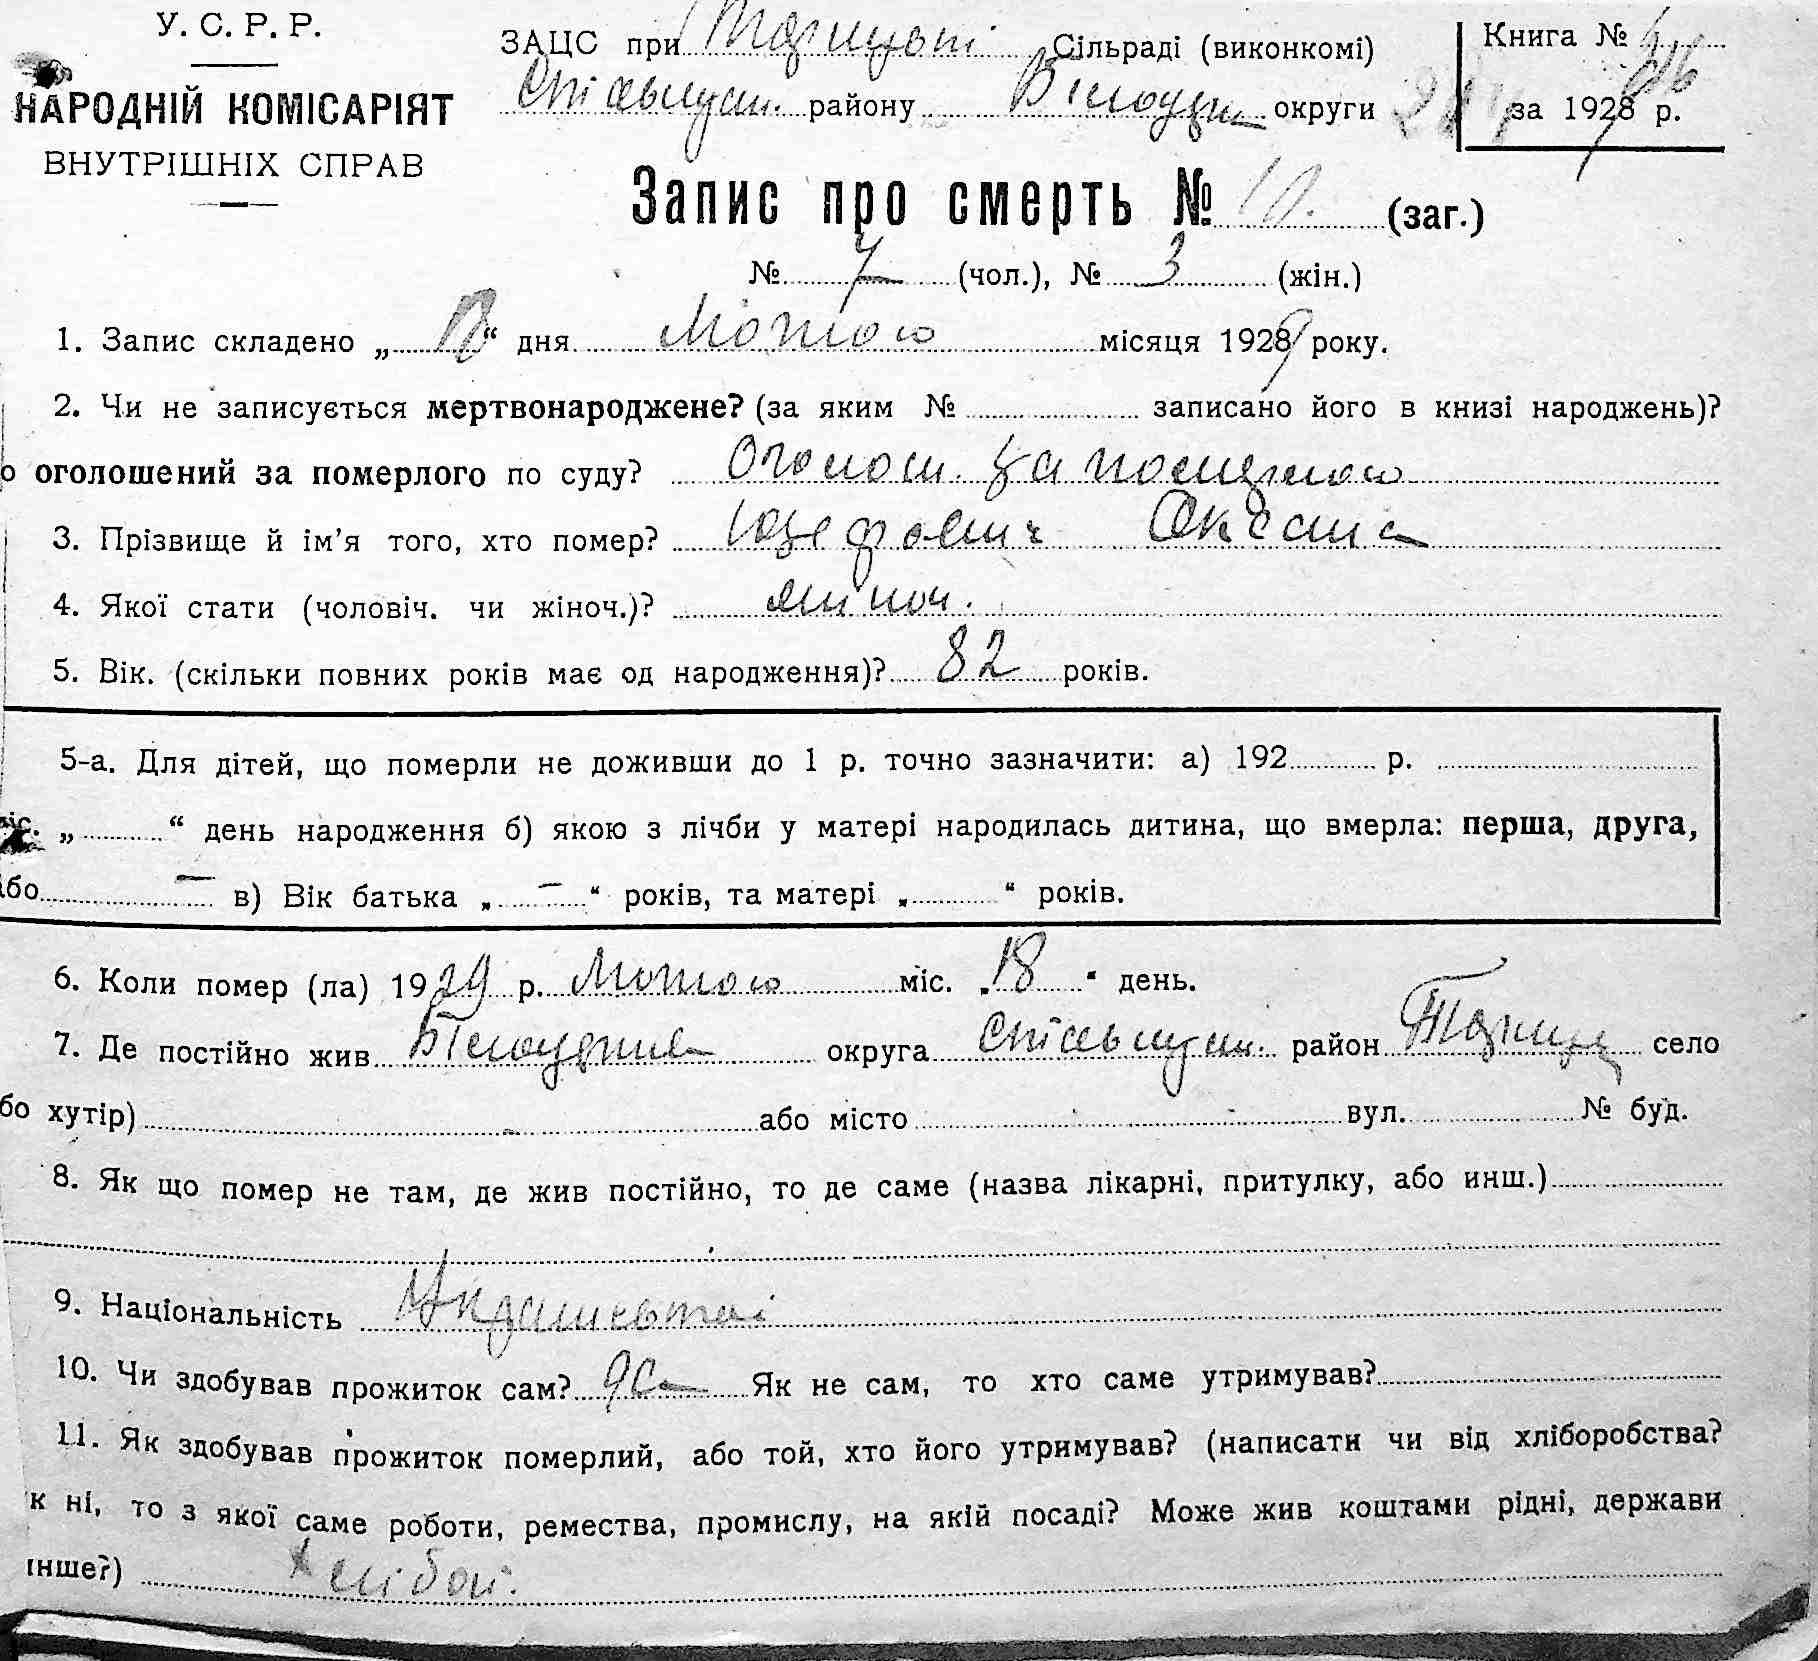 У. С. Р. Р.
НАРОДНІЙ КОМІСАРІЯТ
ВНУТРІШНІХ СПРАВ
ЗАЦС при Сільраді (виконкомі)
району округи
Книга №
за 1928 р.
Запис про смерть № 10. (заг.)
№ 7 (чол.), № 3 (жін.)
1. Запис складено „ “ дня Лютого місяця 1929 року.
2. Чи не записується мертвонароджене? (за яким № записано його в книзі народжень)?
о оголошений за померлого по суду? Оголош. за померлого
3. Прізвище й ім’я того, хто помер? Юзефович Оксана
4. Якої стати (чоловіч. чи жіноч.)? жіноч.
5. Вік. (скільки повних років має од народження)? 82 років.
5-а. Для дітей, що померли не доживши до 1 р. точно зазначити: а) 192 р.
міс. „ “ день народження б) якою з лічби у матері народилась дитина, що вмерла: перша, друга,
або — в) Вік батька „ — “ років, та матері „ “ років.
6. Коли помер (ла) 1929 р. Лютого міс. „18“ день.
7. Де постійно жив округа район село
бо хутір) або місто вул. № буд.
8. Як що помер не там, де жив постійно, то де саме (назва лікарні, притулку, або инш.)
9. Національність
10. Чи здобував прожиток сам? да Як не сам, то хто саме утримував?
11. Як здобував прожиток померлий, або той, хто його утримував? (написати чи від хліборобства?
к ні, то з якої саме роботи, ремества, промислу, на якій посаді? Може жив коштами рідні, держави
інше?) Хлібоп.